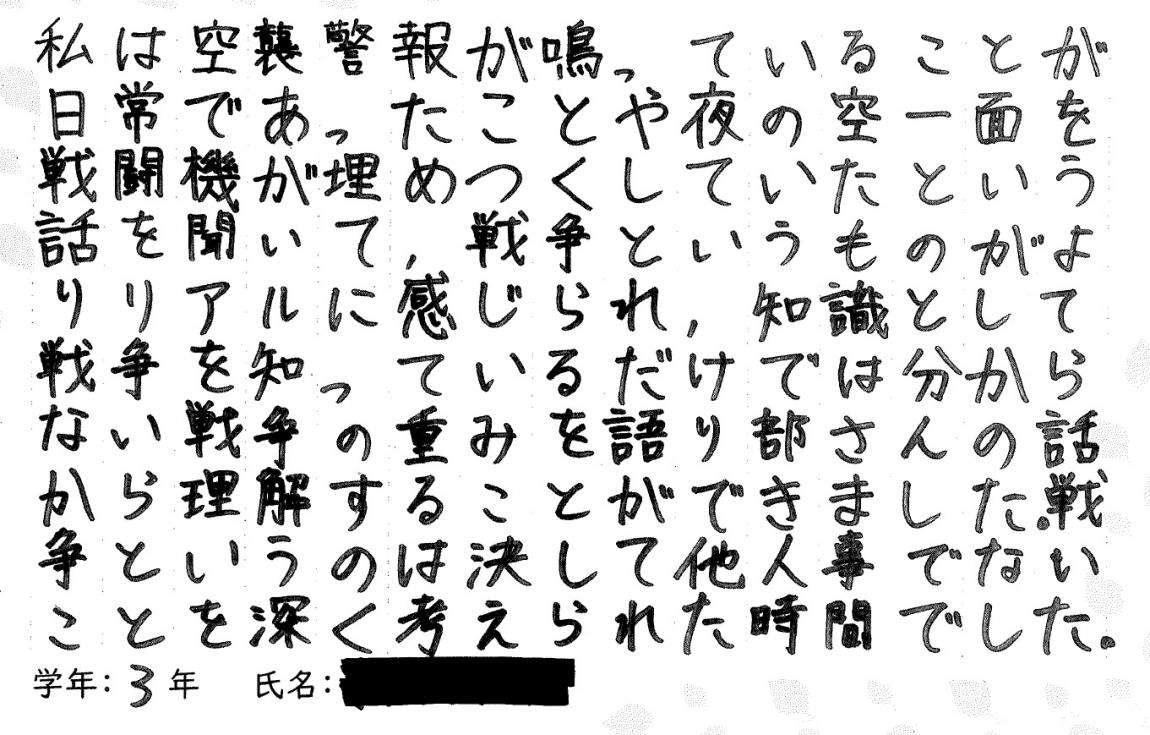 私は空襲警報が鳴っていることが
日常であったことや夜の空一面を
戦闘機が埋めつくしていたという
話を聞いて,戦争というものがよ
りリアルに感じられ,知識として
戦争を知っているだけでは分から
ない戦争の重みを語り部さんの話
から理解することができました。戦
争というのは決して他人事でない
ことを深く考えられた時間でした。
学年:3年 氏名: